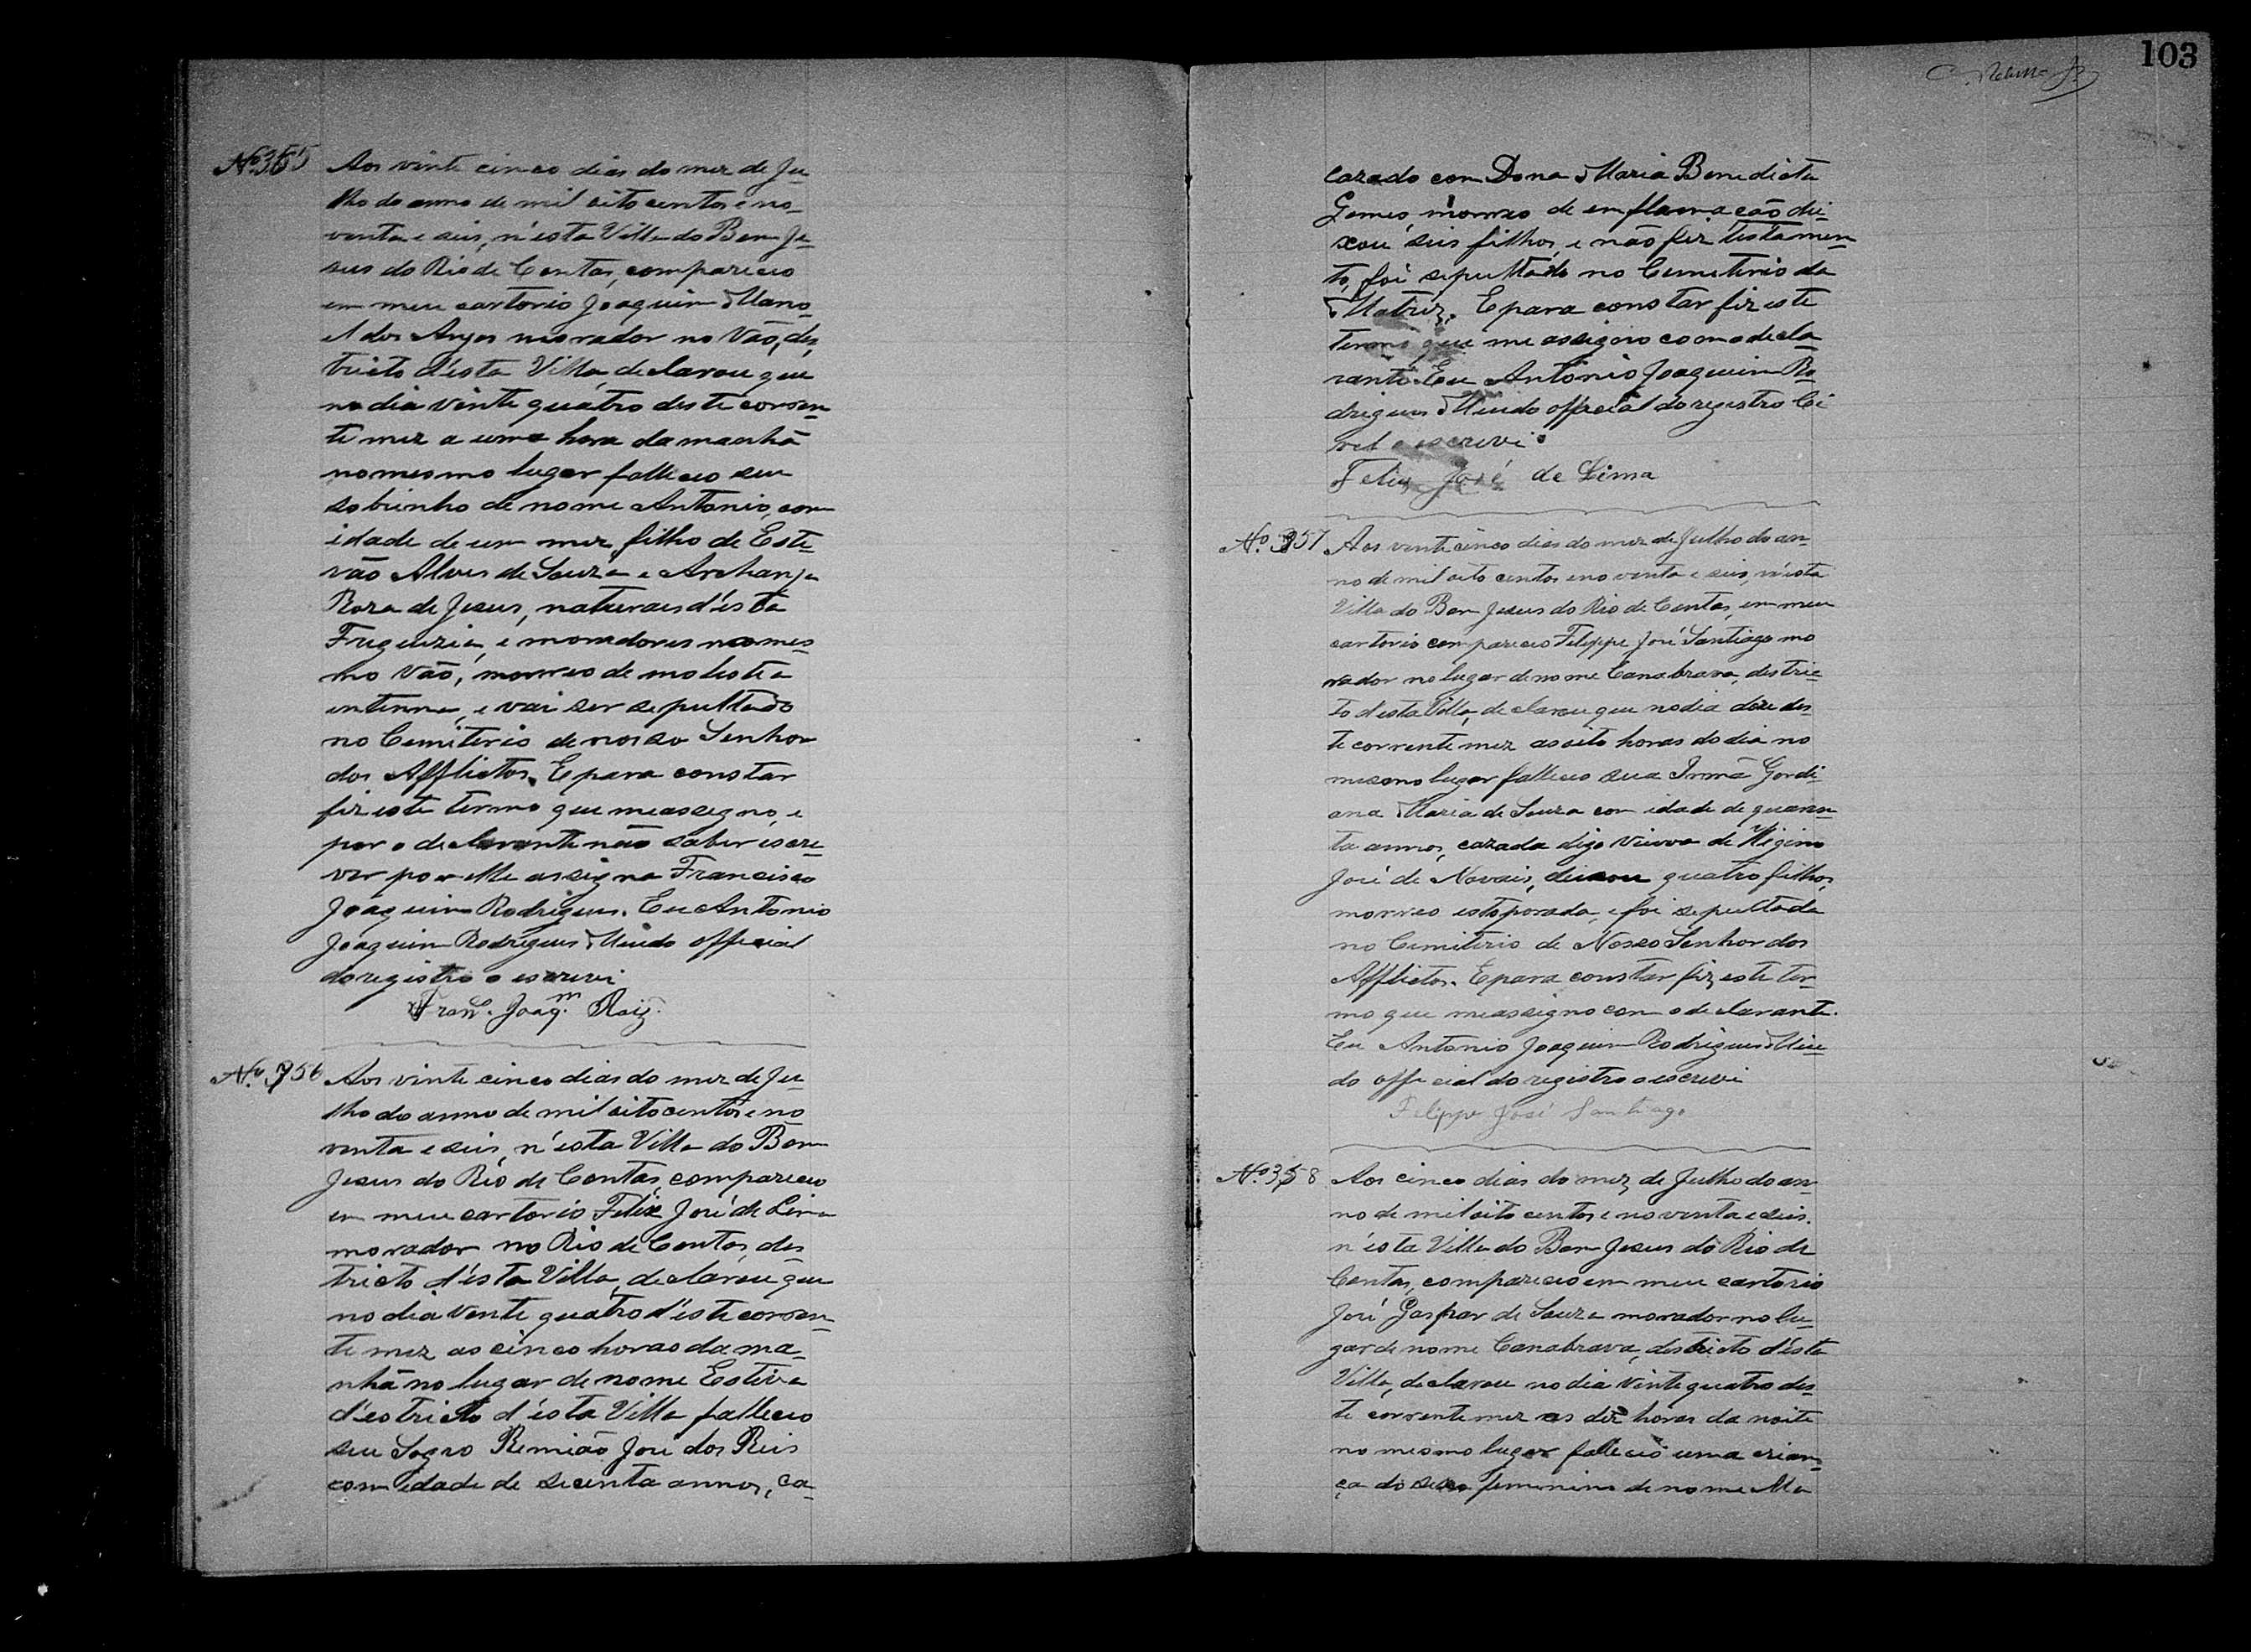 Nº 355 Aos vinte cinco dias do mez de Ju-
lho do anno de mil oito centos e no-
venta e seis, n'esta Villa do Bom Je-
sus do Rio de Contas, compareceo
em meu cartorio Joaquim Mano-
el dos Anjos morador no Vão, des-
tricto d'esta Villa, declarou que
no dia vinte quatro deste corren-
te mez a uma hora da manhã
no mesmo lugar falleceo seu
sobrinho de nome Antonio, com
idade de um mez filho de Este-
vão Alves de Souza e Archanja
Roza de Jesus, naturaes d'esta
Freguezia, e moradores no mes-
mo Vão, morreo de molestia
enterna, e vai ser sepultado
no Cemiterio de nosso Senhor
dos Afflictos. E para constar
fiz este termo que me assegno, e
por o declarante não saber escre-
ver por elle assigna Francisco
Joaquim Rodrigues. Eu Antonio
Joaquim Rodrigues Miudo official
do registro o escrevi
Franº. Joaqm. Roiz
Nº 356 Aos vinte cinco dias do mez de Ju-
lho do anno de mil oito centos e no
venta e seis, n'esta Villa do Bom
Jesus do Rio de Contas, compareceo
em meu cartorio Felix José de Lima
morador no Rio de Contas, des
tricto d'esta Villa, declarou que
no dia vente quatro d'este corren-
te mez as cinco horas da ma-
nhã no lugar de nome Estiva
d'estricto d'esta Villa falleceo
seu Sogro Remião José dos Reis
com idade de secenta annos, ca-
103
cazado com Dona Maria Benedicta
Gomes, morreo de enflamação dei-
xou seis filhos, e não fez testamen-
to, foi sepultado no Cemeterio da
Matriz. E para constar fiz este
termo que me assigno com o decla-
rante. Eu Antonio Joaquim Ro-
drigues Miudo official do registro Ci
vel o escrevi.
Felix José de Lima
Nº. 357 Aos vente cinco dias do mez de Julho do an-
no de mil oito centos e noventa e seis, n'esta
Villa do Bom Jesus do Rio de Contas, em meu
cartorio compareceo Felippe José Santiago mo
rador no lugar de nome Canabrava, destric-
to d'esta Villa, declarou que no dia doze des-
te corrente mez as oito horas do dia no
mesmo lugar falleceo sua Irmã Gordi-
ana Maria de Souza com idade de quaren-
ta annos, cazada digo viuva de Higino
José de Novais, deixou quatro filhos,
morreo estoporada, e foi sepultada
no Cemiterio de Nosso Senhor dos
Afflictos. E para constar fiz este ter-
mo que me assigno com o declarante.
Eu Antonio Joaquim Rodrigues Miu-
do official do registro o escrevi
Felippe José Santiago
Nº. 358 Aos cinco dias do mez de Julho do an-
no de mil oito centos e noventa e seis.
n'esta Villa do Bom Jesus do Rio de
Contas, compareceo em meu cartorio
José Gaspar de Souza morador no lu-
gar de nome Canabrava, destricto d'esta
Villa, declarou no dia vinte quatro des-
te corrente mez as dez horas da noite
no mesmo lugar falleceo uma crian-
ça do sexo femenino de nome Ma